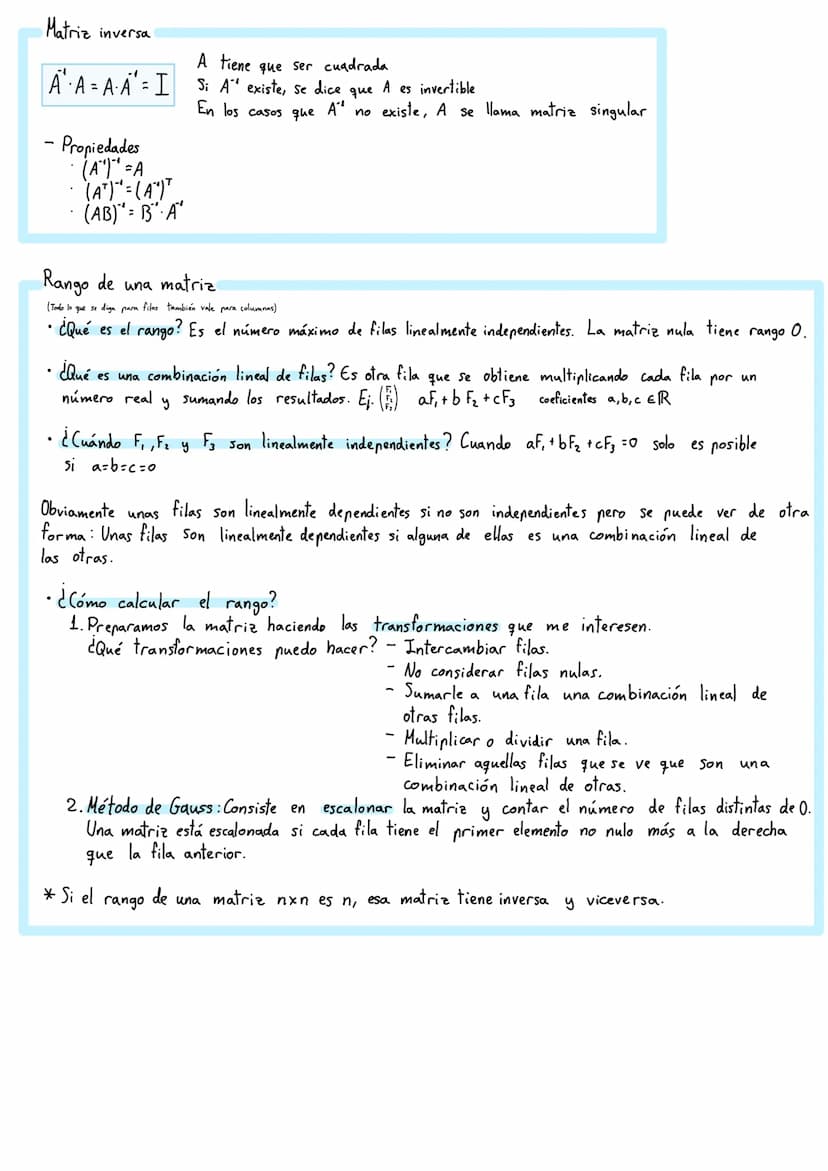 Matriz inversa
A⁻¹·A = A·A⁻¹ = I
A tiene que ser cuadrada
Si A⁻¹ existe, se dice que A es invertible
En los casos que A⁻¹ no existe, A se llama matriz singular
- Propiedades
· (A⁻¹)⁻¹ = A
· (Aᵀ)⁻¹ = (A⁻¹)ᵀ
· (AB)⁻¹ = B⁻¹·A⁻¹
Rango de una matriz
(Todo lo que se diga para filas también vale para columnas)
· ¿Qué es el rango? Es el número máximo de filas linealmente independientes. La matriz nula tiene rango 0.
· ¿Qué es una combinación lineal de filas? Es otra fila que se obtiene multiplicando cada fila por un
número real y sumando los resultados. Ej. (F₁ F₂ F₃) aF₁ + bF₂ + cF₃ coeficientes a,b,c ∈ ℝ
· ¿Cuándo F₁, F₂ y F₃ son linealmente independientes? Cuando aF₁ + bF₂ + cF₃ = 0 solo es posible
si a=b=c=0
Obviamente unas filas son linealmente dependientes si no son independientes pero se puede ver de otra
forma: Unas filas son linealmente dependientes si alguna de ellas es una combinación lineal de
las otras.
· ¿Cómo calcular el rango?
1. Preparamos la matriz haciendo las transformaciones que me interesen.
¿Qué transformaciones puedo hacer? - Intercambiar filas.
- No considerar filas nulas.
- Sumarle a una fila una combinación lineal de
otras filas.
- Multiplicar o dividir una fila.
- Eliminar aquellas filas que se ve que son una
combinación lineal de otras.
2. Método de Gauss: Consiste en escalonar la matriz y contar el número de filas distintas de 0.
Una matriz está escalonada si cada fila tiene el primer elemento no nulo más a la derecha
que la fila anterior.
* Si el rango de una matriz nxn es n, esa matriz tiene inversa y viceversa.